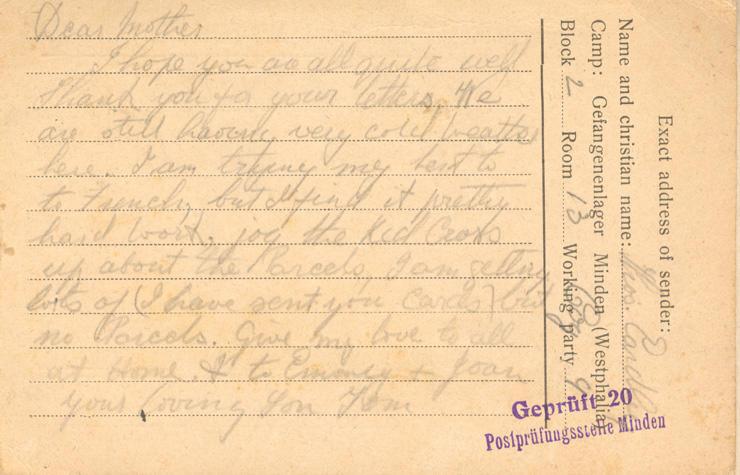 Dear Mother
I hope you are all quite well
Thank you for your letters, We
are still having very cold weather
here. I am trying my best to
to French, but I find it pretty
hard work, jog the Red Cross
up about the Parcels, I am getting
lots of (I have sent you cards) but
no Parcels. Give my love to all
at home. & to + Joan
your loving Son Tom
Exact address of sender:
Name and christian name: Thos.
Camp: Gefangenenlager Minden (Westphalia)
Block 2 Room 13 Working party
Geprüft 20
Postprüfungsstelle Minden